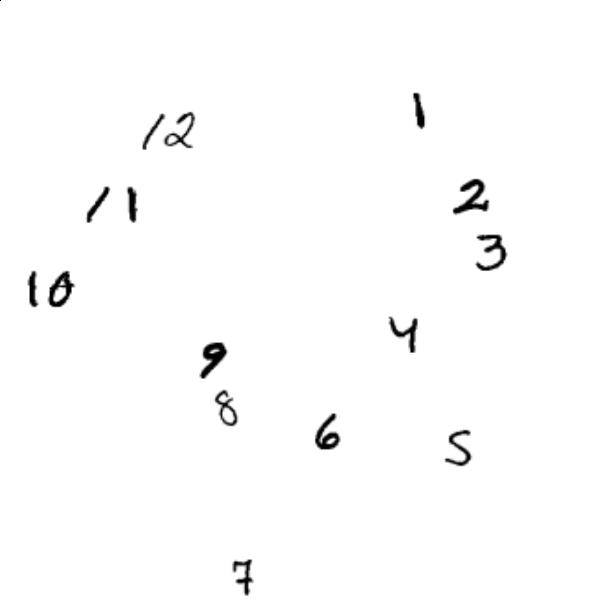 1
12
2
11
3
10
4
9
8
6
5
7